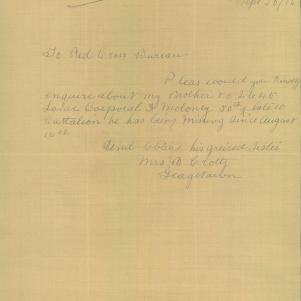 Sept 26/16
To Red Cross Bureau
Pleas would you kindly
enquire about my Brother No 2445
Lance Corporal F Moloney 50th late 10
Battalion he has being Missing Since August
16th
and oblige his greived Sister
Mrs B Crotty
Geagetown